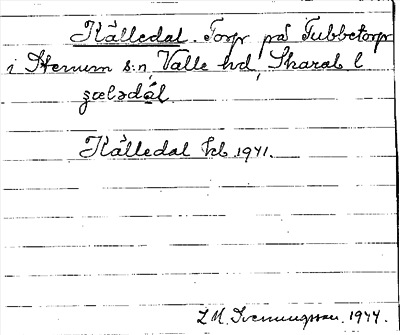 Källedal. Torp på Tubbetorp
i Stenum s:n, Valle hd, Skarab. l
Källedal kb 1941.
L M. Svenungsson. 1944.